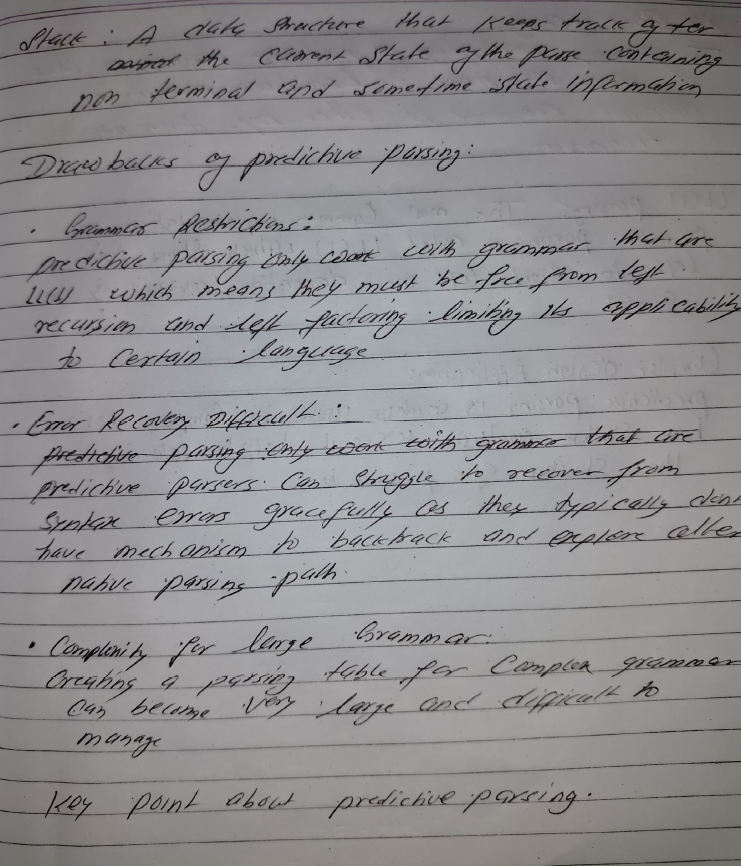 Stack : A data structure that keeps track of
the current state of the parse containing
non terminal and sometime state information
Drawbacks of predictive parsing:
· Grammar Restrictions:
predictive parsing only work with grammar that are
LL(1) which means they must be free from left
recursion and left factoring limiting its applicability
to certain language
· Error Recovery Difficult :
predictive parsing only work with grammar that are
predictive parsers can struggle to recover from
syntax errors gracefully as they typically dont
have mechanism to backtrack and explore alter
native parsing path.
· Complexity for large Grammar:
Creating a parsing table for complex grammar
can become very large and difficult to
manage
Key point about predictive parsing.